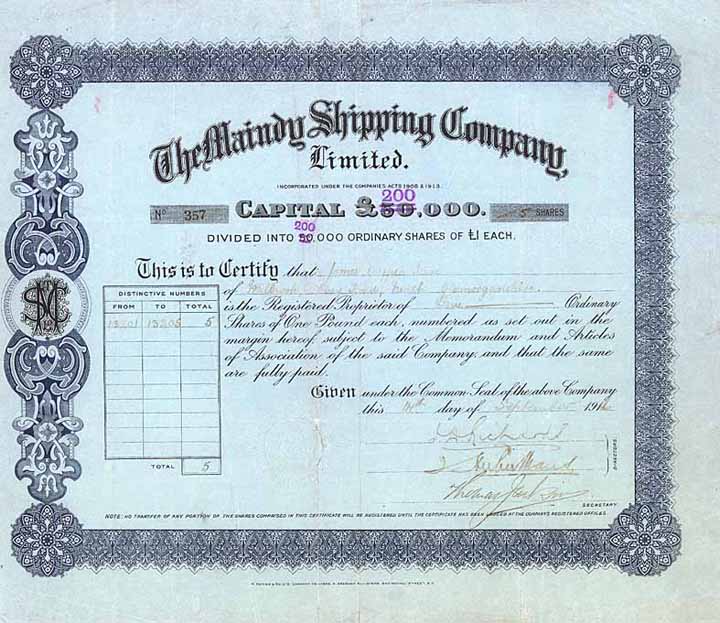 The Maindy Shipping Company,
Limited.
INCORPORATED UNDER THE COMPANIES ACTS 1908 & 1913.
No 357 CAPITAL £50,000. 200 5 SHARES
DIVIDED INTO 50,000 ORDINARY SHARES OF £1 EACH. 200
This is to Certify that James
of Road, Neath, Glamorganshire
is the Registered Proprietor of Five Ordinary
Shares of One Pound each, numbered as set out in the
margin hereof subject to the Memorandum and Articles
of Association of the said Company; and that the same
are fully paid.
DISTINCTIVE NUMBERS
FROM TO TOTAL
13201 13205 5
TOTAL 5
Given under the Common Seal of the above Company
this day of September 191
DIRECTORS.
SECRETARY.
NOTE: NO TRANSFER OF ANY PORTION OF THE SHARES COMPRISED IN THIS CERTIFICATE WILL BE REGISTERED UNTIL THE CERTIFICATE HAS BEEN LODGED AT THE COMPANY'S REGISTERED OFFICES.